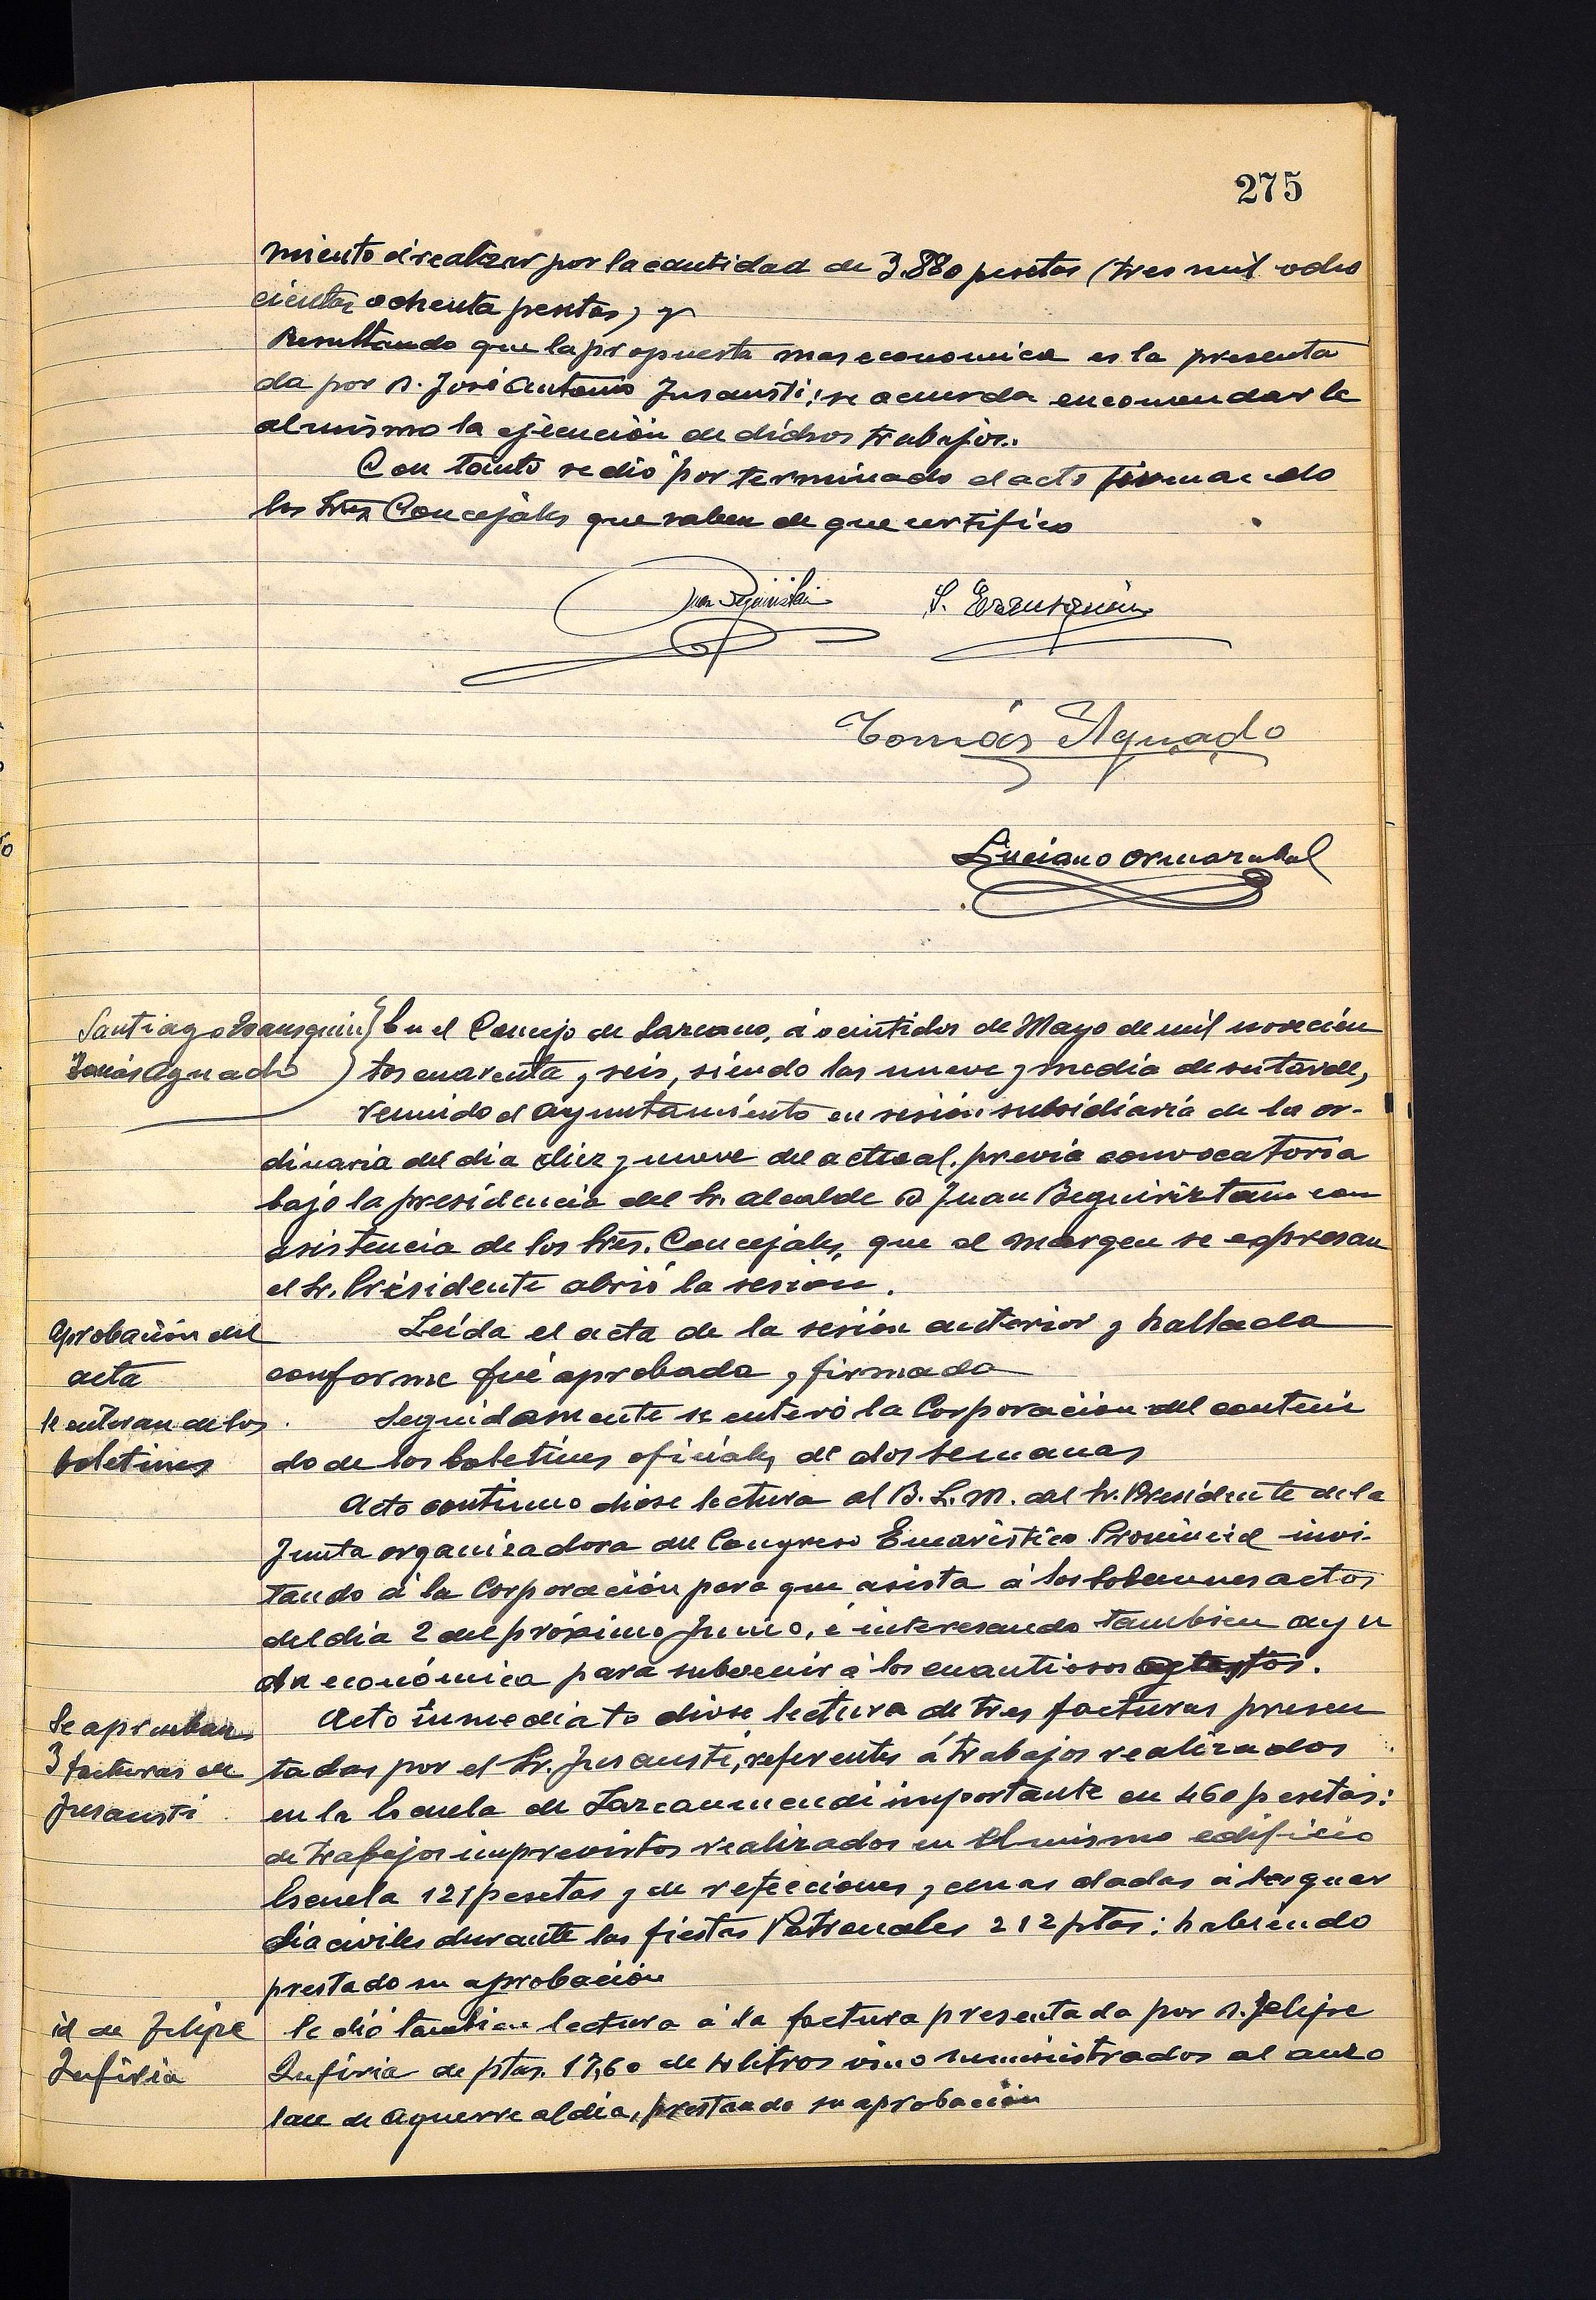 275
miento á realizar por la cantidad de 3.880 pesetas (tres mil ocho
cientas ochenta pesetas) y
Resultando que la propuesta mas economica es la presenta
da por D. José Antonio Jusausti; se acuerda encomendarle
al mismo la ejecución de dichos trabajos.
Con tanto se dió por terminado el acto firmando
los Sres Concejales que saben de que certifico
S. Erausquin
Tomás Aguado
Luciano Ormazabal
Santiago Erausquin
Tomás Aguado
En el Concejo de Lazcano, á veintidos de Mayo de mil novecien
tos cuarenta y seis, siendo las nueve y media de su tarde,
reunido el Ayuntamiento en sesión subsidiaria de la or-
dinaria del dia diez y nueve del actual. previa convocatoria
bajo la presidencia del Sr. Alcalde D Juan Beguiristain con
asistencia de los Sres. Concejales, que al margen se expresan
el Sr. Presidente abrió la sesión.
Aprobación del
acta
Leída el acta de la sesión anterior y hallada
conforme fué aprobada y firmada
Se enteran de los
boletines
Seguidamente se enteró la Corporación del conteni
do de los boletines oficiales de dos semanas
Acto continuo diose lectura al B. L. M. del Sr. Presidente de la
Junta organizadora del Congreso Eucarístico Provincial invi-
tando á la Corporación para que asista á los solemnes actos
del día 2 del próximo Junio, é interesando tambien ayu
da económica para subvenir á los cuantiosos gastos.
Se aprueban
3 facturas de
Jusausti
Acto inmediato diose lectura de tres facturas presen
tadas por el Sr. Jusausti, referentes á trabajos realizados
en la Escuela de Lazcaumendi importante en 460 pesetas:
de trabajos imprevistos realizados en el mismo edificio
Escuela 121 pesetas y de refecciones y cenas dadas á los guar
dia civiles durante las fiestas Patronales 212 ptas: habiendo
prestado su aprobación
id de Felipe
Zufiria
Se dió tambien lectura á la factura presentada por D. Felipe
Zufiria de ptas. 17,60 de 4 litros vino suministrados al auzo
lan de Aguerre al dia, prestando su aprobación